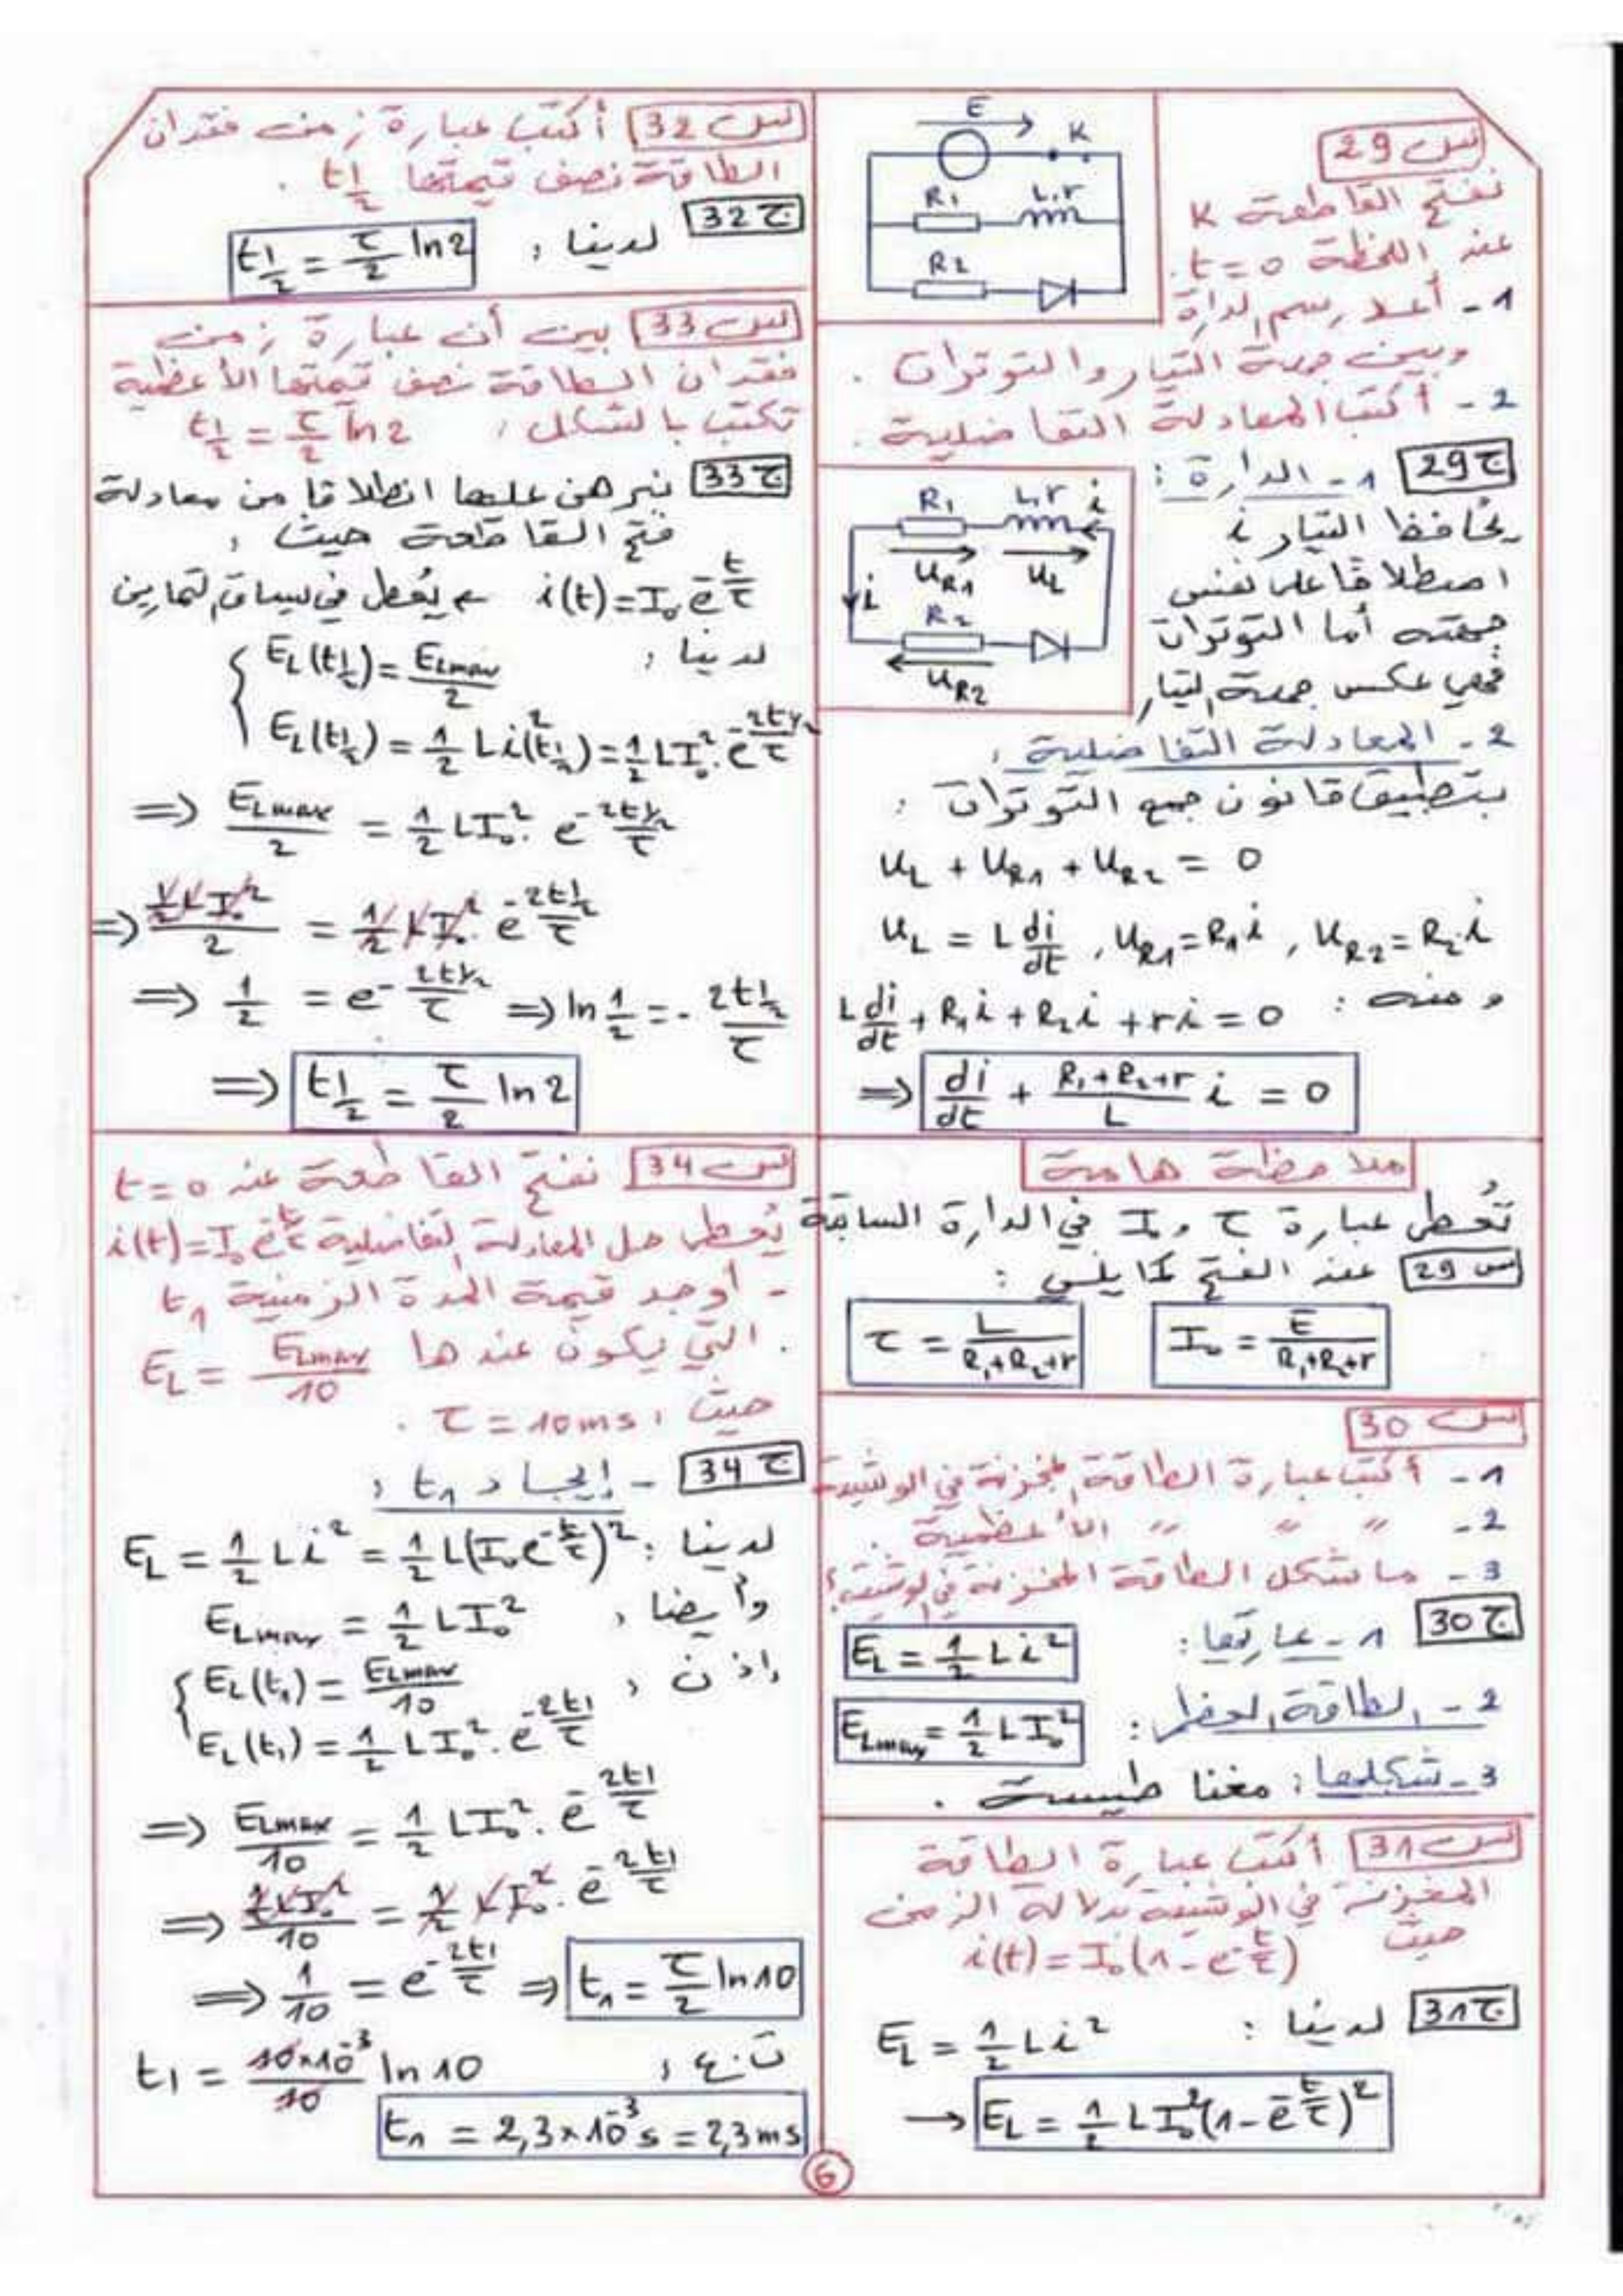 س 29
نفتح القاطعة K
عند اللحظة t = 0.
1 - أعد رسم الدارة
وبين جهة التيار والتوترات .
2 - أكتب المعادلة التفاضلية .
E
K
R1 L,r
R2
ج 29 1 - الدارة :
يحافظ التيار i
اصطلاحًا على نفس
جهته أما التوترات
فهي عكس جهة التيار
R1 L,r i
uR1 uL
i
R2
uR2
2 - المعادلة التفاضلية :
بتطبيق قانون جمع التوترات :
uL + uR1 + uR2 = 0
uL = L di/dt , uR1 = R1 i , uR2 = R2 . i
ومنه : L di/dt + R1 i + R2 i + r i = 0
⇒ di/dt + (R1 + R2 + r)/L i = 0
ملاحظة هامة
تُعطى عبارة τ و I₀ في الدارة السابقة
س 29 عند الفتح كما يلي :
I₀ = E/(R1+R2+r) τ = L/(R1+R2+r)
س 30
1 - أكتب عبارة الطاقة المخزنة في الوشيعة
2 - " " " الأعظمية .
3 - ما شكل الطاقة المخزنة في الوشيعة ؟
ج 30 1 - عبارتها : EL = 1/2 L i²
2 - الطاقة العظمى : ELmax = 1/2 L I₀²
3 - شكلها : مغناطيسية .
س 31 أكتب عبارة الطاقة
المخزنة في الوشيعة بدلالة الزمن
حيث i(t) = I₀(1 - e^(-t/τ))
ج 31 لدينا : EL = 1/2 L i²
→ EL = 1/2 L I₀² (1 - e^(-t/τ))²
س 32 أكتب عبارة زمن فقدان
الطاقة نصف قيمتها t1/2 .
ج 32 لدينا : t1/2 = τ/2 ln 2
س 33 بين أن عبارة زمن
فقدان الطاقة نصف قيمتها الأعظمية
تكتب بالشكل : t1/2 = τ/2 ln 2
ج 33 نبرهن عليها انطلاقا من معادلة
فتح القاطعة حيث :
i(t) = I₀ e^(-t/τ) يُعطى في سياق التمارين
لدينا : EL(t1/2) = ELmax/2
EL(t1/2) = 1/2 L i²(t1/2) = 1/2 L I₀² . e^(-2t1/2/τ)
⇒ ELmax/2 = 1/2 L I₀² . e^(-2t1/2/τ)
⇒ (1/2 L I₀²)/2 = 1/2 L I₀² . e^(-2t1/2/τ)
⇒ 1/2 = e^(-2t1/2/τ) ⇒ ln 1/2 = - 2t1/2/τ
⇒ t1/2 = τ/2 ln 2
س 34 نفتح القاطعة عند t = 0
يُعطى حل المعادلة التفاضلية i(t) = I₀ e^(-t/τ)
- أوجد قيمة المدة الزمنية t1
التي يكون عندها EL = ELmax/10 .
حيث : τ = 10 ms .
ج 34 - إيجاد t1 :
لدينا : EL = 1/2 L i² = 1/2 L (I₀ e^(-t/τ))²
وأيضا : ELmax = 1/2 L I₀²
إذن : EL(t1) = ELmax/10
EL(t1) = 1/2 L I₀² . e^(-2t1/τ)
⇒ ELmax/10 = 1/2 L I₀² . e^(-2t1/τ)
⇒ (1/2 L I₀²)/10 = 1/2 L I₀² . e^(-2t1/τ)
⇒ 1/10 = e^(-2t1/τ) ⇒ t1 = τ/2 ln 10
ت.ع : t1 = (10×10⁻³)/10 ln 10
t1 = 2,3×10⁻³ s = 2,3 ms
6